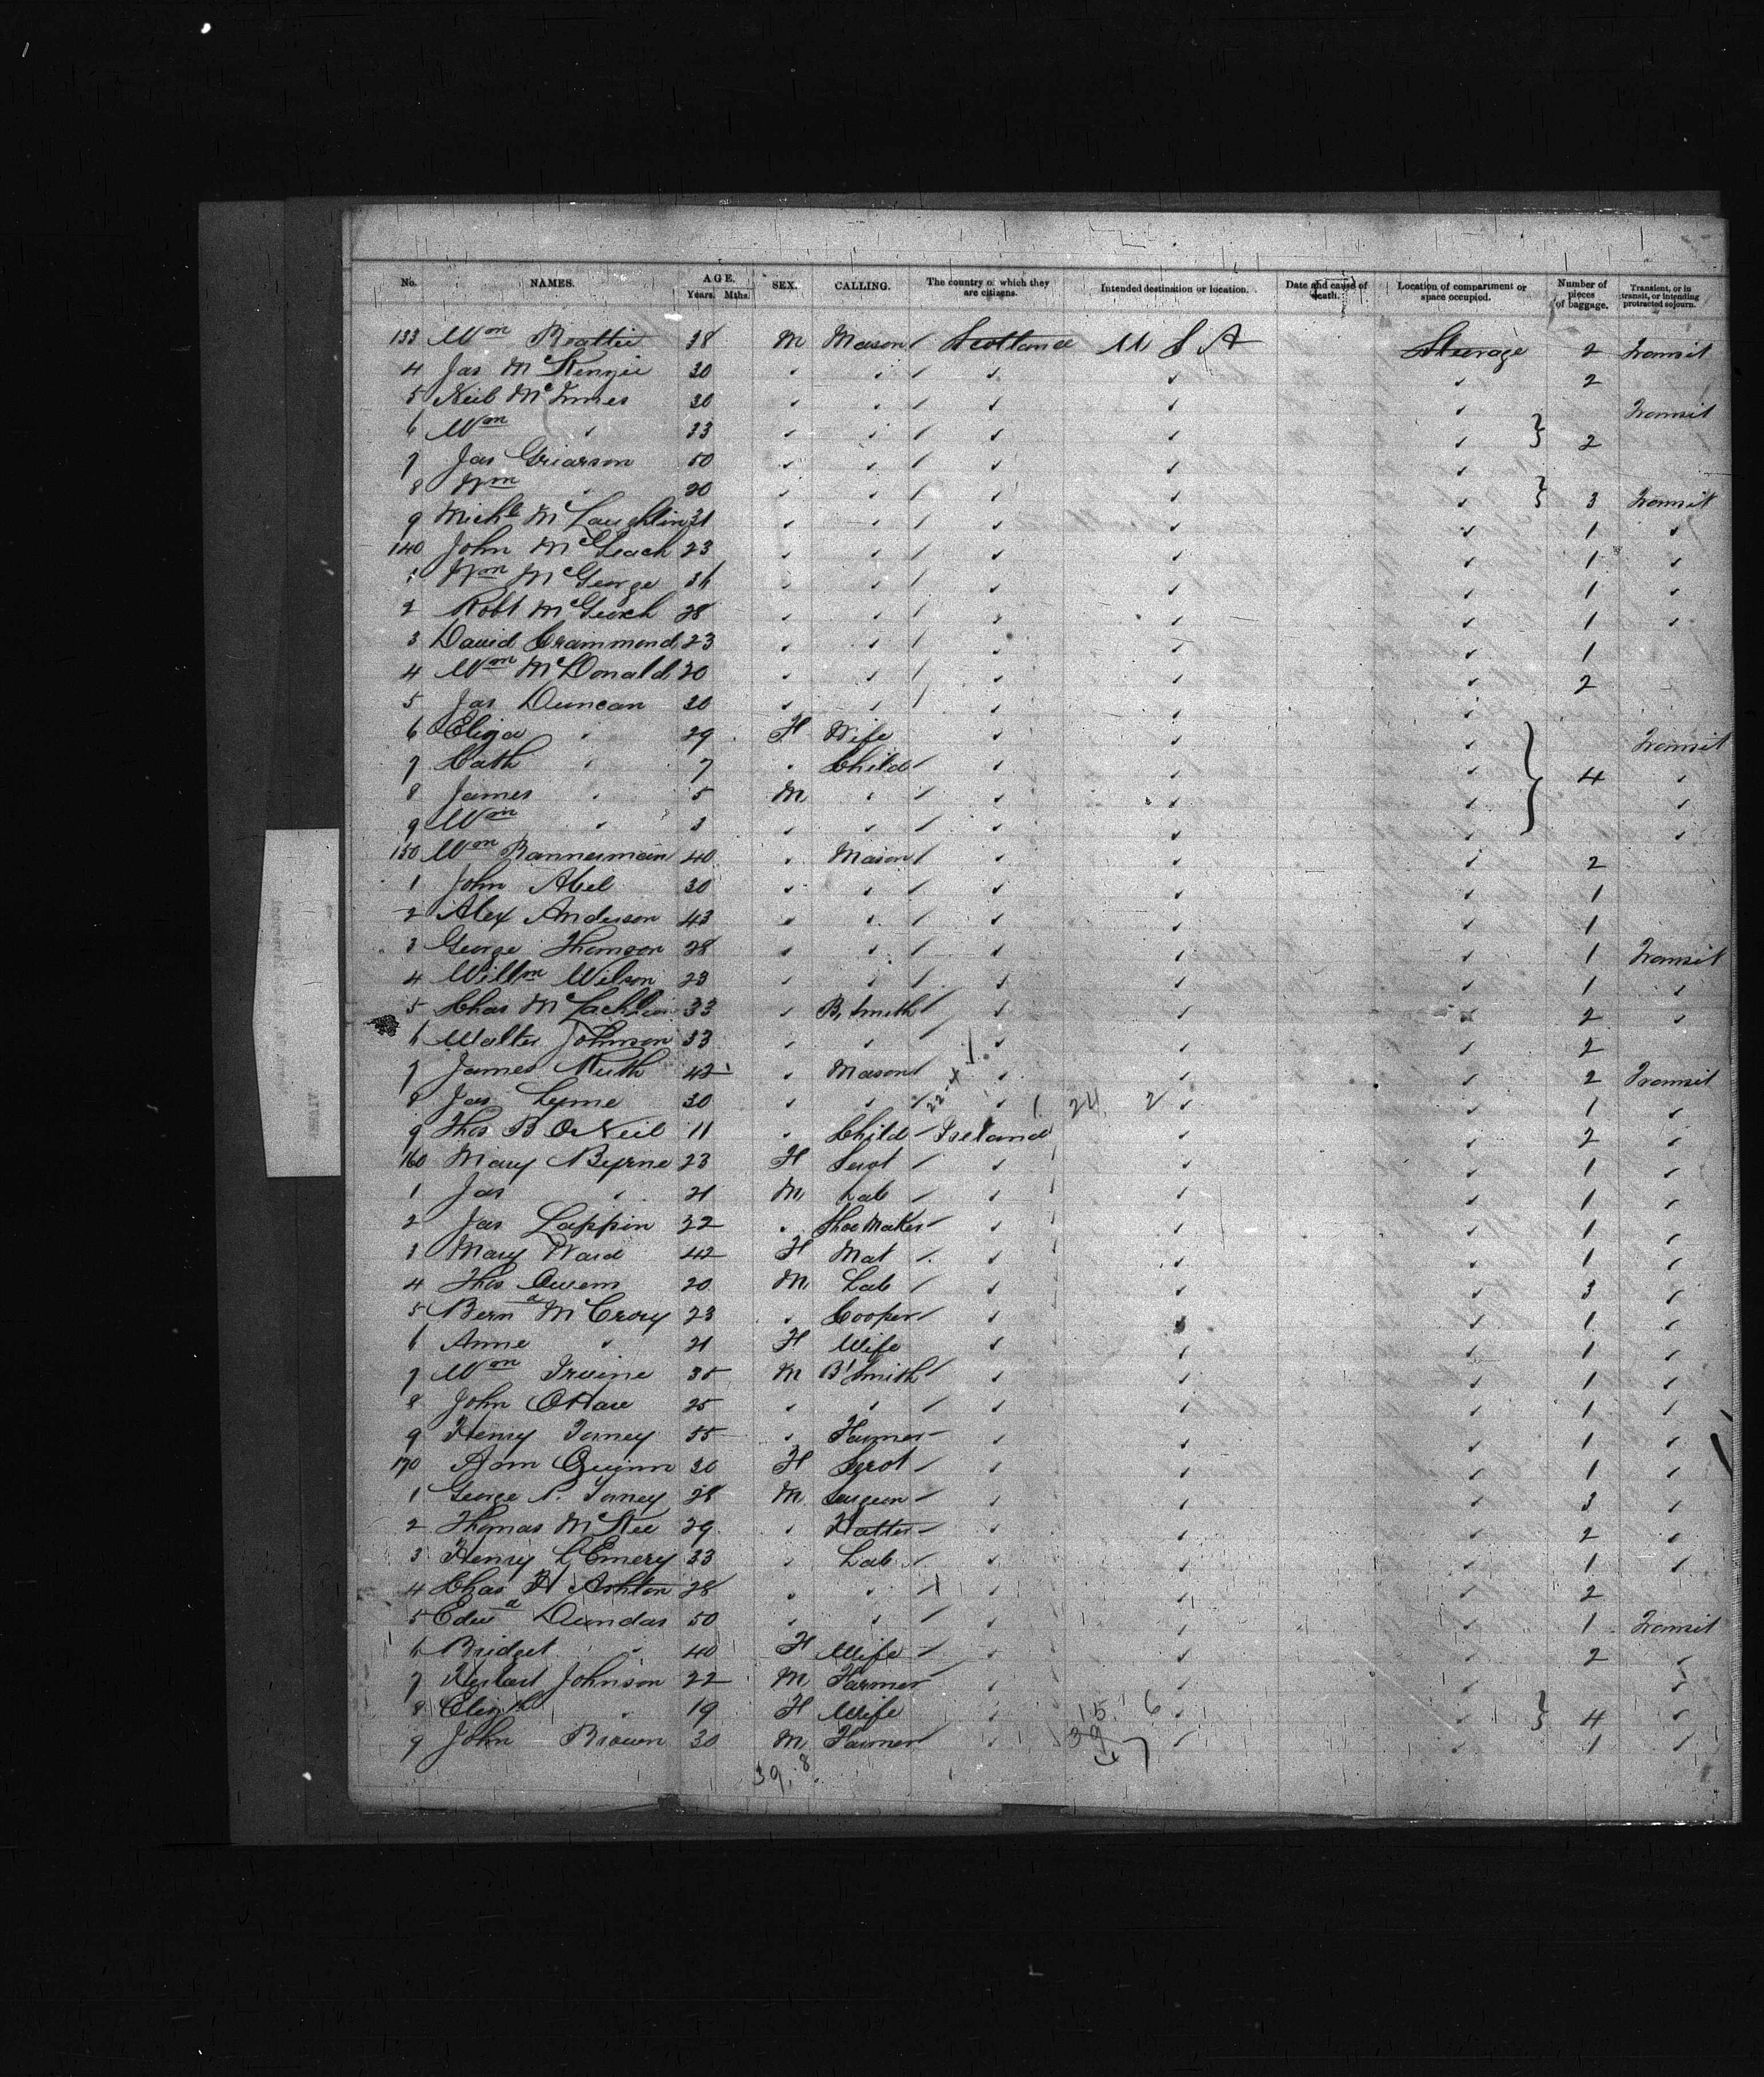 No. NAMES. AGE. Years. Mths. SEX. CALLING. The country of which they are citizens. Intended destination or location. Date and cause of death. Location of compartment or space occupied. Number of pieces of baggage. Transient, or in transit, or intending protracted sojourn.
133 Wm Beattie 38 M Mason Scotland U S A Steerage 2 Transit
4 Jas McKenzie 30 2
5 Neil McInnes 30 Transit
6 Wm " 33 } 2
7 Jas Griarson 50
8 Wm " 20 } 3 Transit
9 Michl McLaughlin 31 1
140 John McGeach 23 1
1 Wm McGeorge 36 1
2 Robt McGeoch 28 1
3 David Crammond 23 1
4 Wm McDonald 20 2
5 Jas Duncan 30
6 Eliza " 29 F Wife Transit
7 Cath " 7 " Child } 4
8 James " 5 M "
9 Wm " 3 " "
150 Wm Bannerman 40 " Mason 2
1 John Abel 30 1
2 Alex Anderson 43 1
3 George Thomson 28 1 Transit
4 Willm Wilson 23 1
5 Chas McLachlan 33 " B. Smith 2
6 Walter Johnson 33 2
7 James Keith 42 " Mason 2 Transit
8 Jas Lyme 30 22-X 1 24 2 1
9 Thos B O'Neil 11 " Child Ireland 2
160 Mary Byrne 23 F Servt 1
1 Jas " 21 M Lab 1
2 Jas Lappin 22 " Shoe Maker 1
3 Mary Ward 42 F Mat 1
4 Thos Owens 20 M Lab 3
5 Bernd McCrory 23 " Cooper 1
6 Anne " 21 F Wife 1
7 Wm Irvine 35 M B'Smith 1
8 John O'Hare 25 1
9 Henry Torney 55 " Farmer 1
170 Ann Quinn 30 F Servt 1
1 George P. Torney 28 M Surgeon 3
2 Thomas McKee 29 " Hatter 2
3 Henry C Emery 33 " Lab 1
4 Chas H Ashton 28 2
5 Edwd Dundas 50 1 Transit
6 Bridget " 40 F Wife 2
7 Herbert Johnson 22 M Farmer
8 Elizth " 19 F Wife 15 6 } 4
9 John Brown 30 M Farmer 39 7 1
39. 8